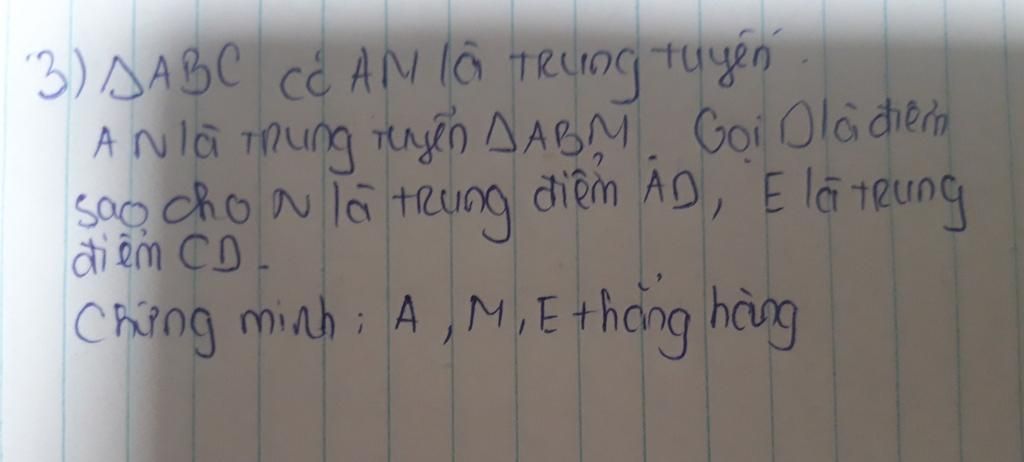 3) ΔABC có AM là trung tuyến.
AN là trung tuyến ΔABM. Gọi D là điểm
sao cho N là trung điểm AD, E là trung
điểm CD.
Chứng minh: A, M, E thẳng hàng